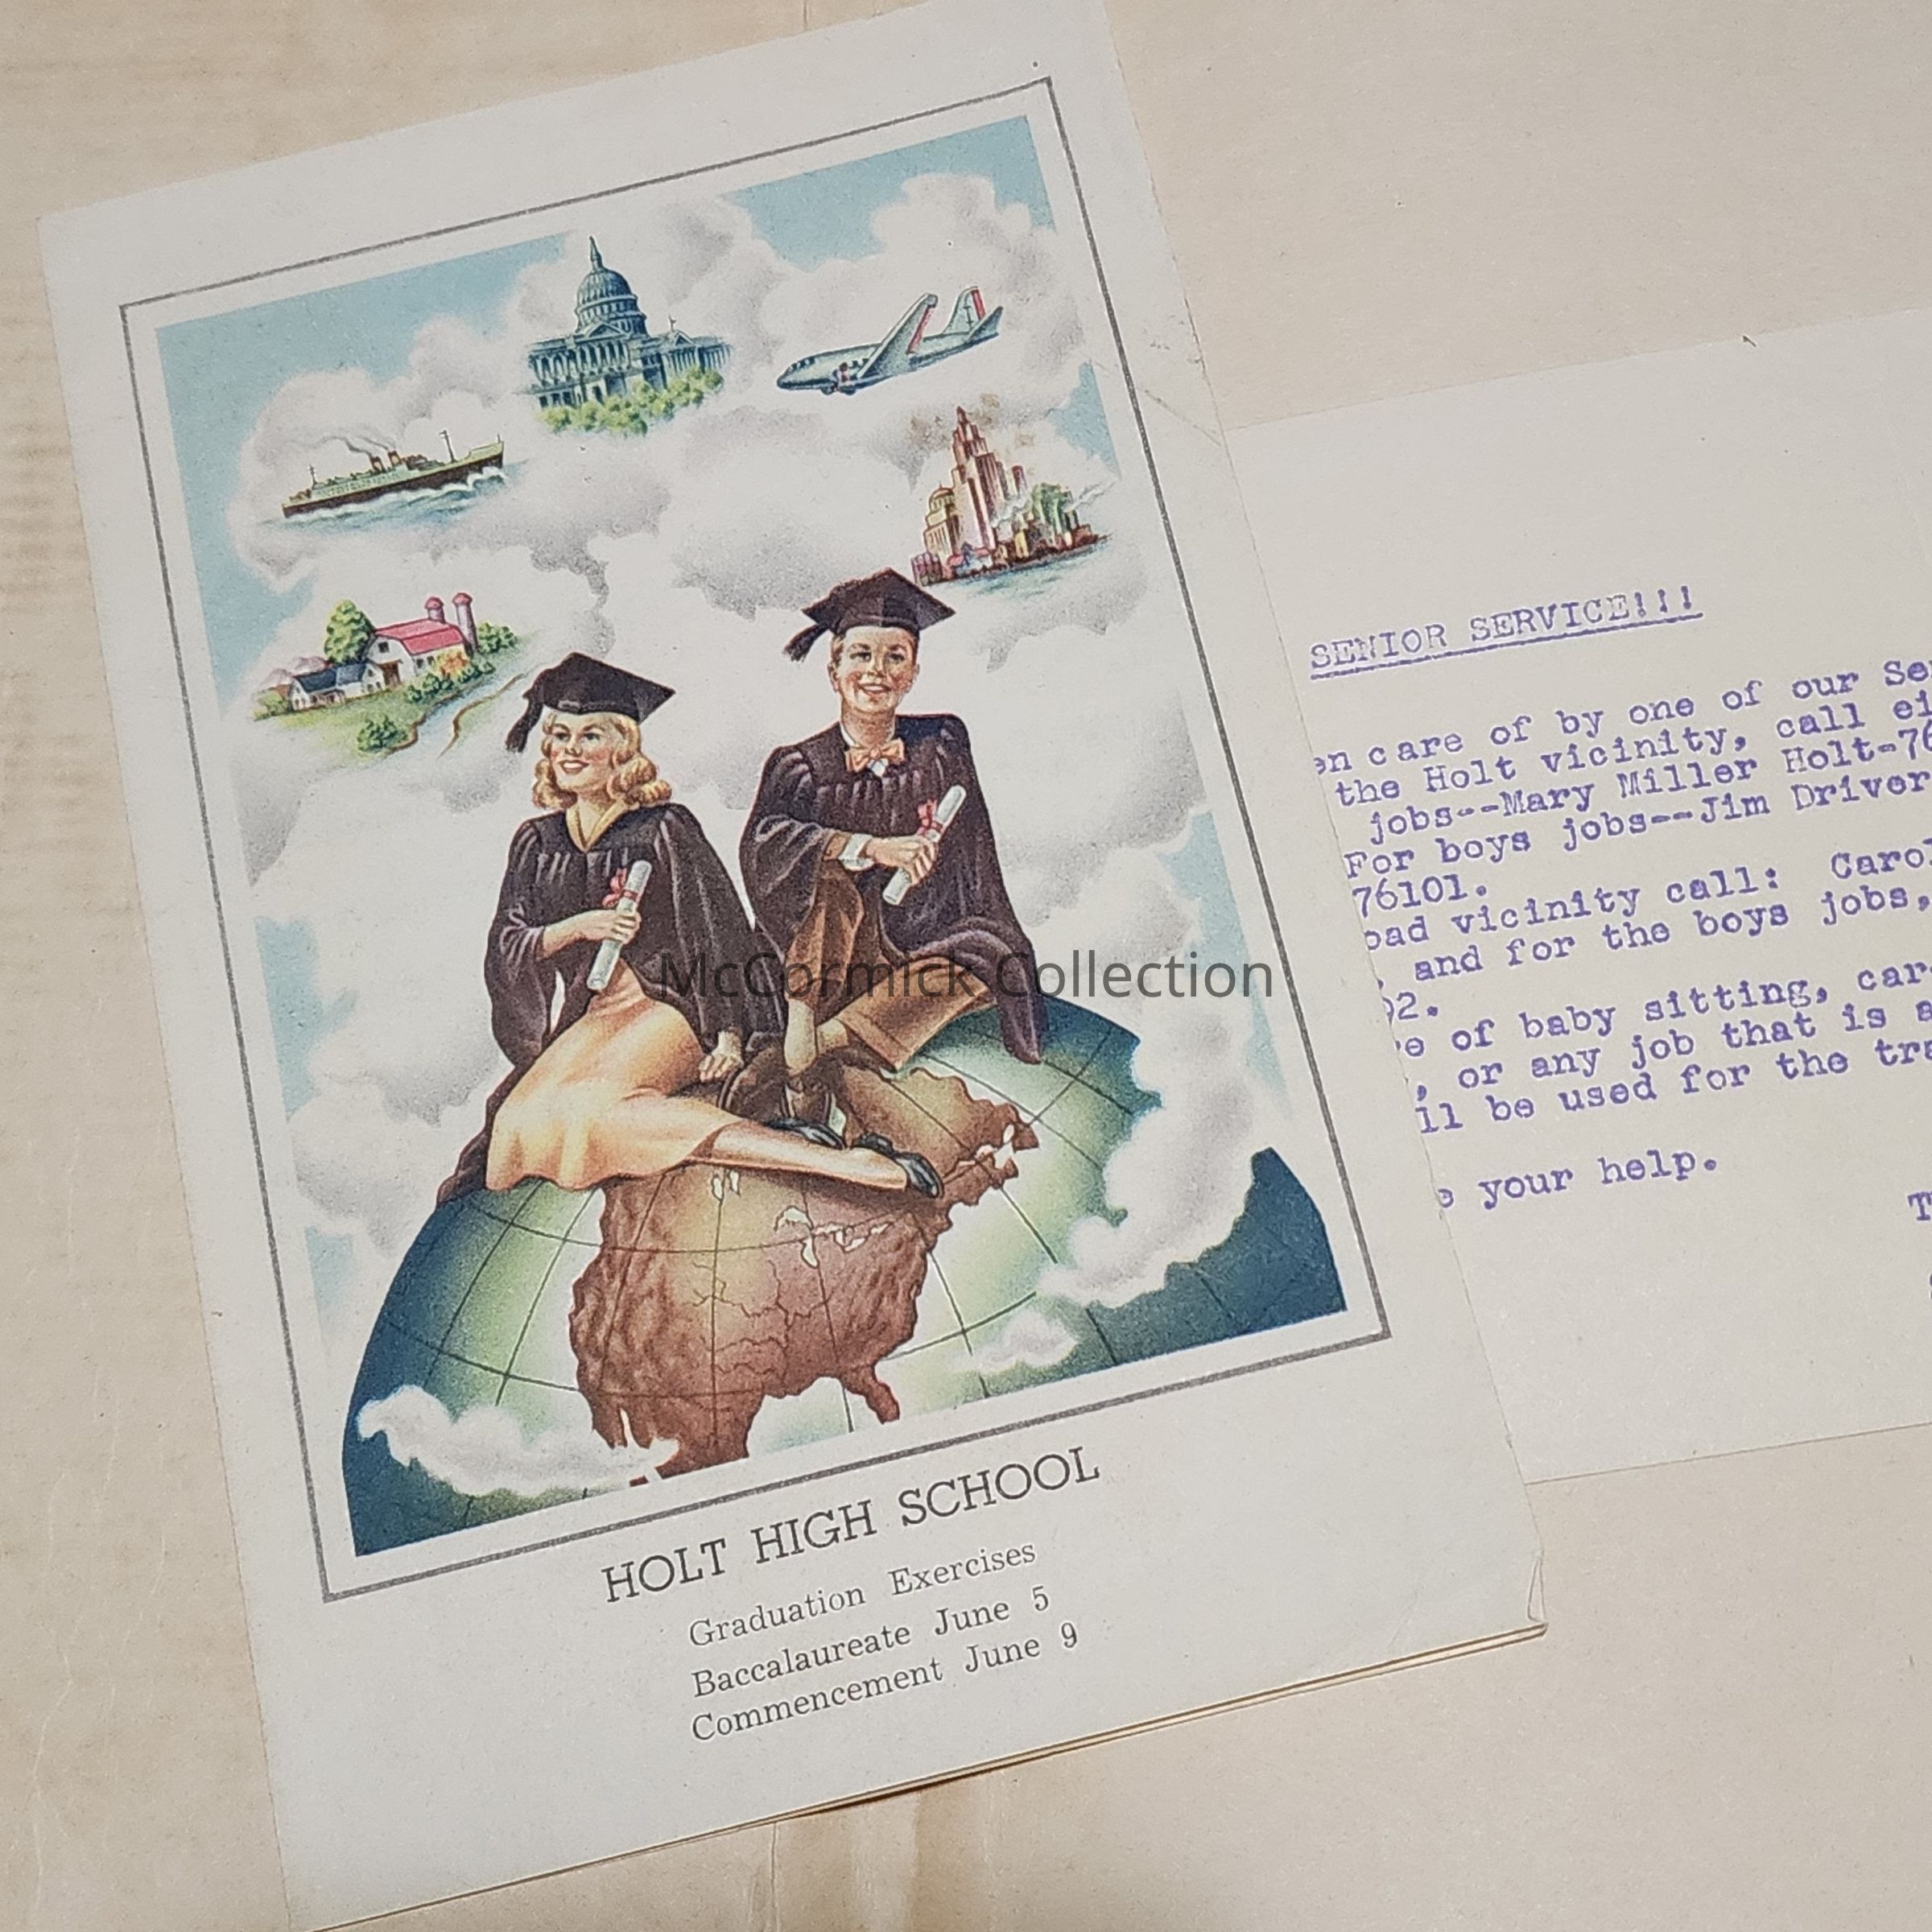 HOLT HIGH SCHOOL
Graduation Exercises
Baccalaureate June 5
Commencement June 9
McCormick Collection
SENIOR SERVICE!!!
care of by one of our Se
the Holt vicinity, call ei
jobs--Mary Miller Holt-76
For boys jobs--Jim Driver
76101.
vicinity call: Carol
and for the boys jobs,
92.
of baby sitting, car
, or any job that is a
be used for the tra
your help.
T